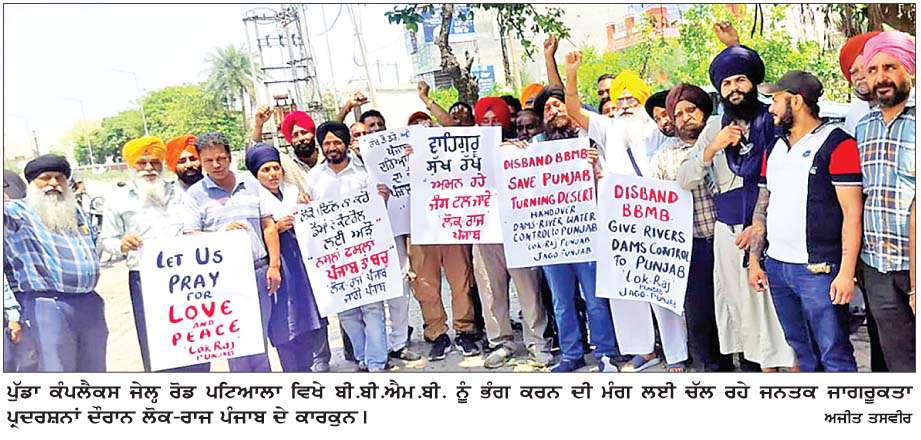 LET US
PRAY
FOR
LOVE
AND
PEACE
"LOK RAJ"
PUNJAB
ਲਈ ਅਤੇ
ਨਸਲਾਂ
ਪੰਜਾਬ ਨੂੰ ਬਚਾ
ਲੋਕ-ਰਾਜ ਪੰਜਾਬ
ਜਾਗੋ ਪੰਜਾਬ
ਪੰਜਾਬ
ਵਾਹਿਗੁਰੂ
ਸੁੱਖ ਰੱਖੇ
"ਅਮਨ ਰਹੇ
ਜੰਗ ਟਲ ਜਾਵੇ
ਲੋਕ-ਰਾਜ
ਪੰਜਾਬ
DISBAND BBMB
SAVE PUNJAB
TURNING DESERT
HANDOVER
DAMS-RIVER WATER
CONTROL TO PUNJAB
LOK-RAJ PUNJAB
JAGO PUNJAB
DISBAND
BBMB.
GIVE RIVERS
DAMS CONTROL
TO PUNJAB
"LOK-RAJ"
PUNJAB
JAGO-PUNJAB
ਪੁੱਡਾ ਕੰਪਲੈਕਸ ਜੇਲ੍ਹ ਰੋਡ ਪਟਿਆਲਾ ਵਿਖੇ ਬੀ.ਬੀ.ਐਮ.ਬੀ. ਨੂੰ ਭੰਗ ਕਰਨ ਦੀ ਮੰਗ ਲਈ ਚੱਲ ਰਹੇ ਜਨਤਕ ਜਾਗਰੂਕਤਾ
ਪ੍ਰਦਰਸ਼ਨਾਂ ਦੌਰਾਨ ਲੋਕ-ਰਾਜ ਪੰਜਾਬ ਦੇ ਕਾਰਕੁਨ।
ਅਜੀਤ ਤਸਵੀਰ